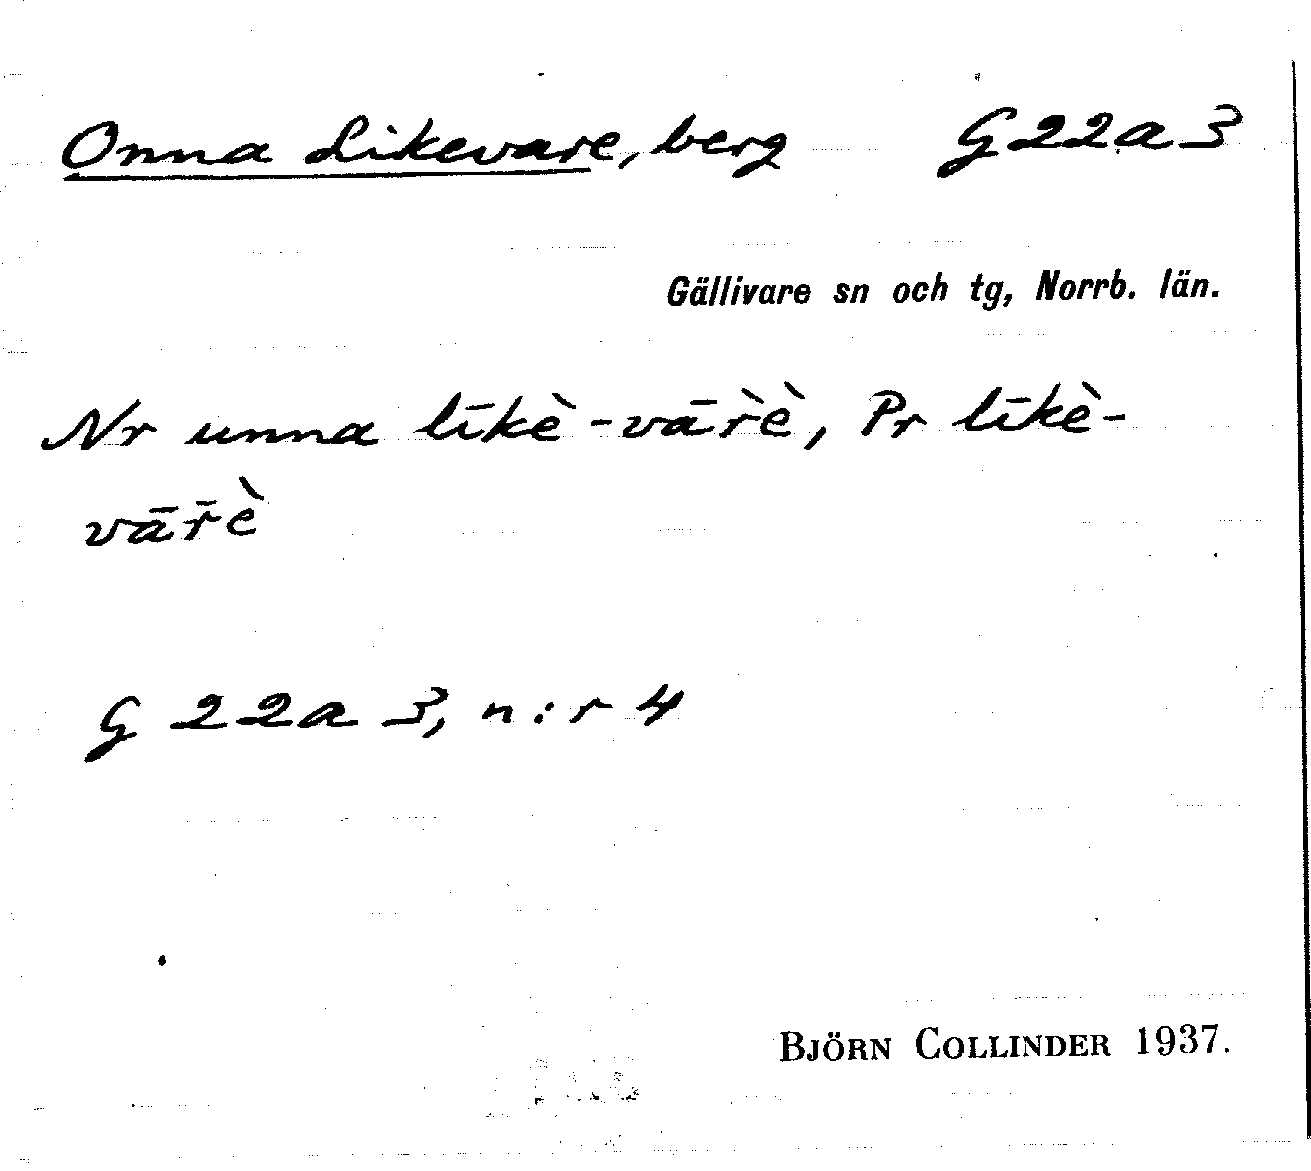 Onna Likevare, berg G22a3
Gällivare sn och tg, Norrb. län.
Nr unna līkè-vār̀è, Pr līkè-
vār̄è
G 22a 3, n:r 4
BJÖRN COLLINDER 1937.